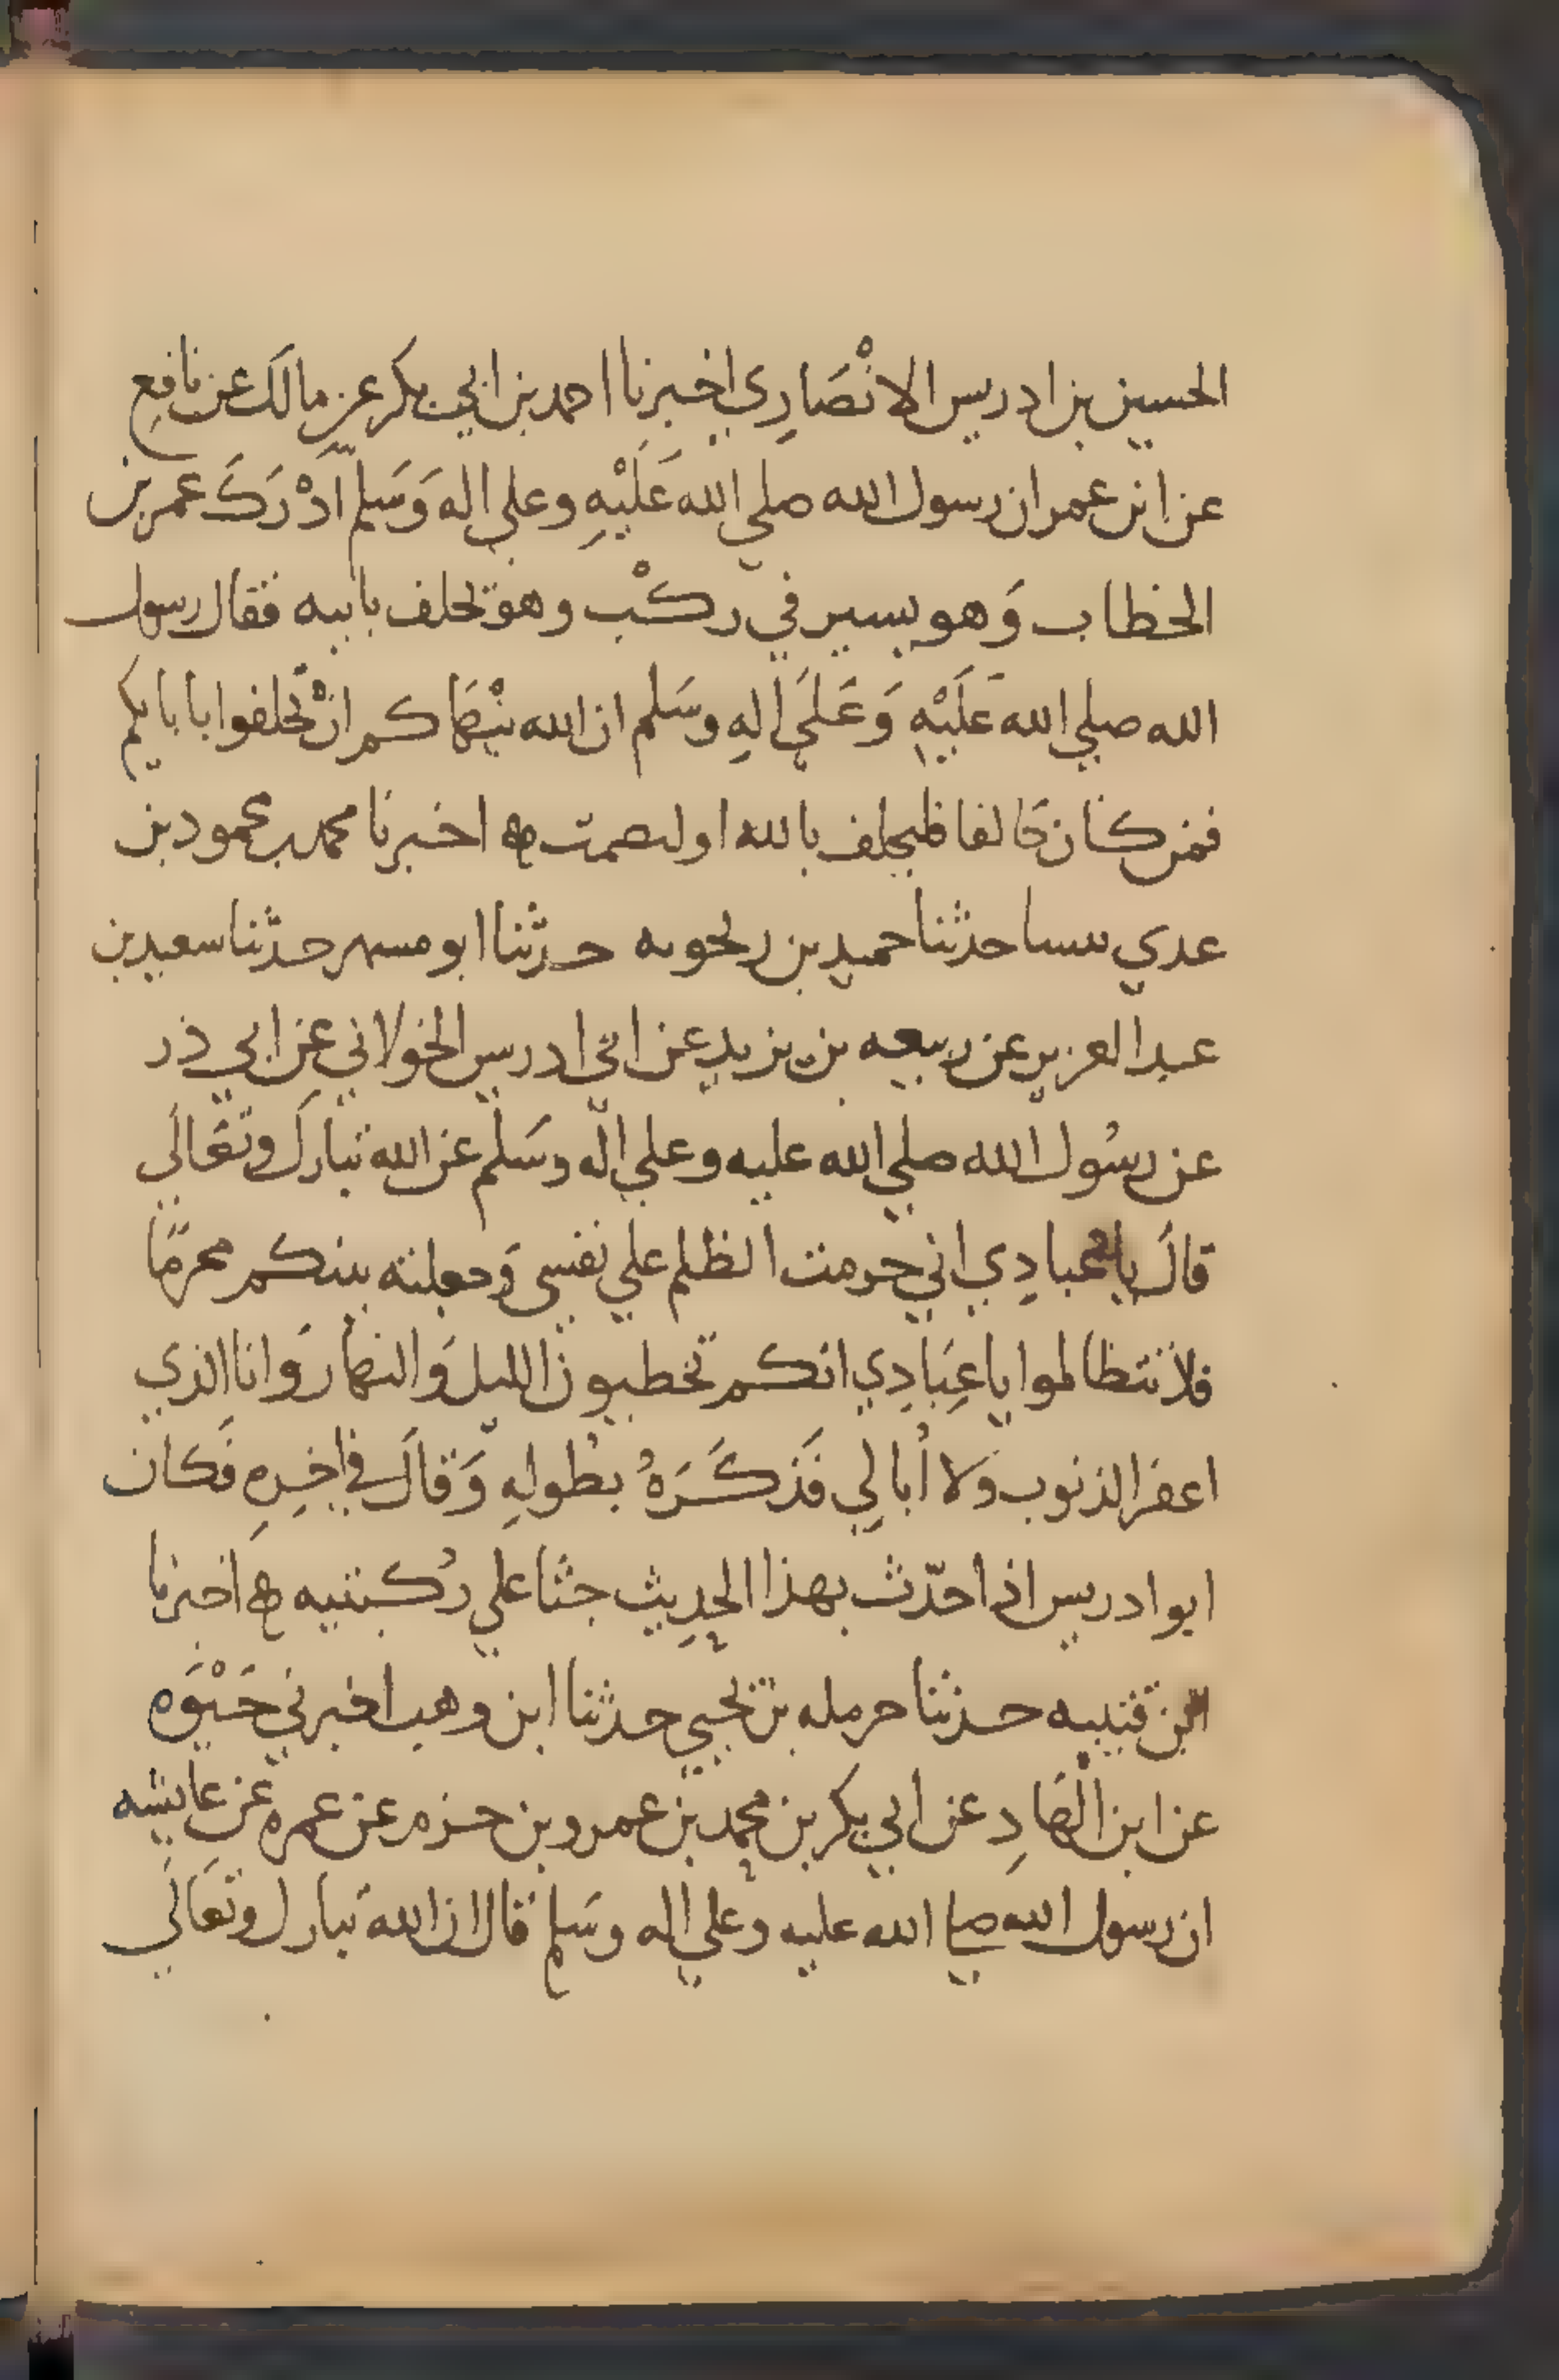 الحسين بن ادريس الانْصَارِي اخبرنا احمد بن ابي بكر عن مالك عن نافع
عن ابن عمر ان رسول الله صلي الله عَلَيْهِ وعلي اله وَسَلم اَدْرَكَ عمر بن
الخطاب وَهو يسير في ركْب وهو يحلف بابيه فقال رسول
الله صلي الله عَلَيْهِ وَعَلَي الِهِ وسَلم ان الله ينْهَاكم انْ تحلفوا بابايكم
فمن كان حَالفا فليحلف بالله او ليصمت ه اخبرنا محمد بن محمود بن
عدي بنسا حدثنا حميد بن زنحويه حدّثنا ابو مسهر حدّثنا سعيد بن
عبد العزيز عن ربيعه بن يزيد عن ابي ادريس الخولاني عن ابي ذر
عن رسُول الله صلي الله عليه وعلي الّه وسَلّم عن الله تبارك وتعَالَي
قالَ يا عبادِي اني حرمت الظلم علي نفسي وَجعلته بينكم محرمًّا
فلا تتظالموا يا عِبَادِي انكم تخطيون الليل وَالنهار وَانا الذي
اغفر الذنوب وَلا اُبالِي فَذكَرَهُ بطُولِهِ وَقالَ في اخِرِهِ فَكان
ابو ادريس اذا حدّث بهذا الحِديث جثَا علي رُكبتيه ه اخبرنا
ابن قتيبه حدثنا حرمله بن يحيي حدثنا ابن وهب اخبرني حَيْوَه
عن ابن الْهَادِ عن ابي بكر بن محمد بن عمرو بن حزم عن عمره عن عايشه
ان رسول الله صلي الله عليه وعلي اله وسَلم قال ان الله تبارك وتعَالَي